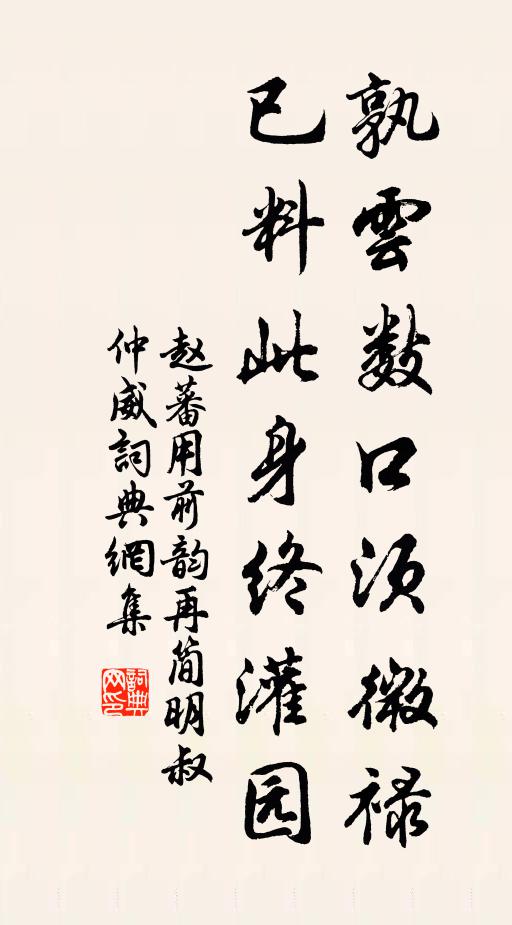 孰雲数口须微禄
已料此身终灌园
赵蕃用前韵再简明叔
仲威詞典網集
詞典
网印